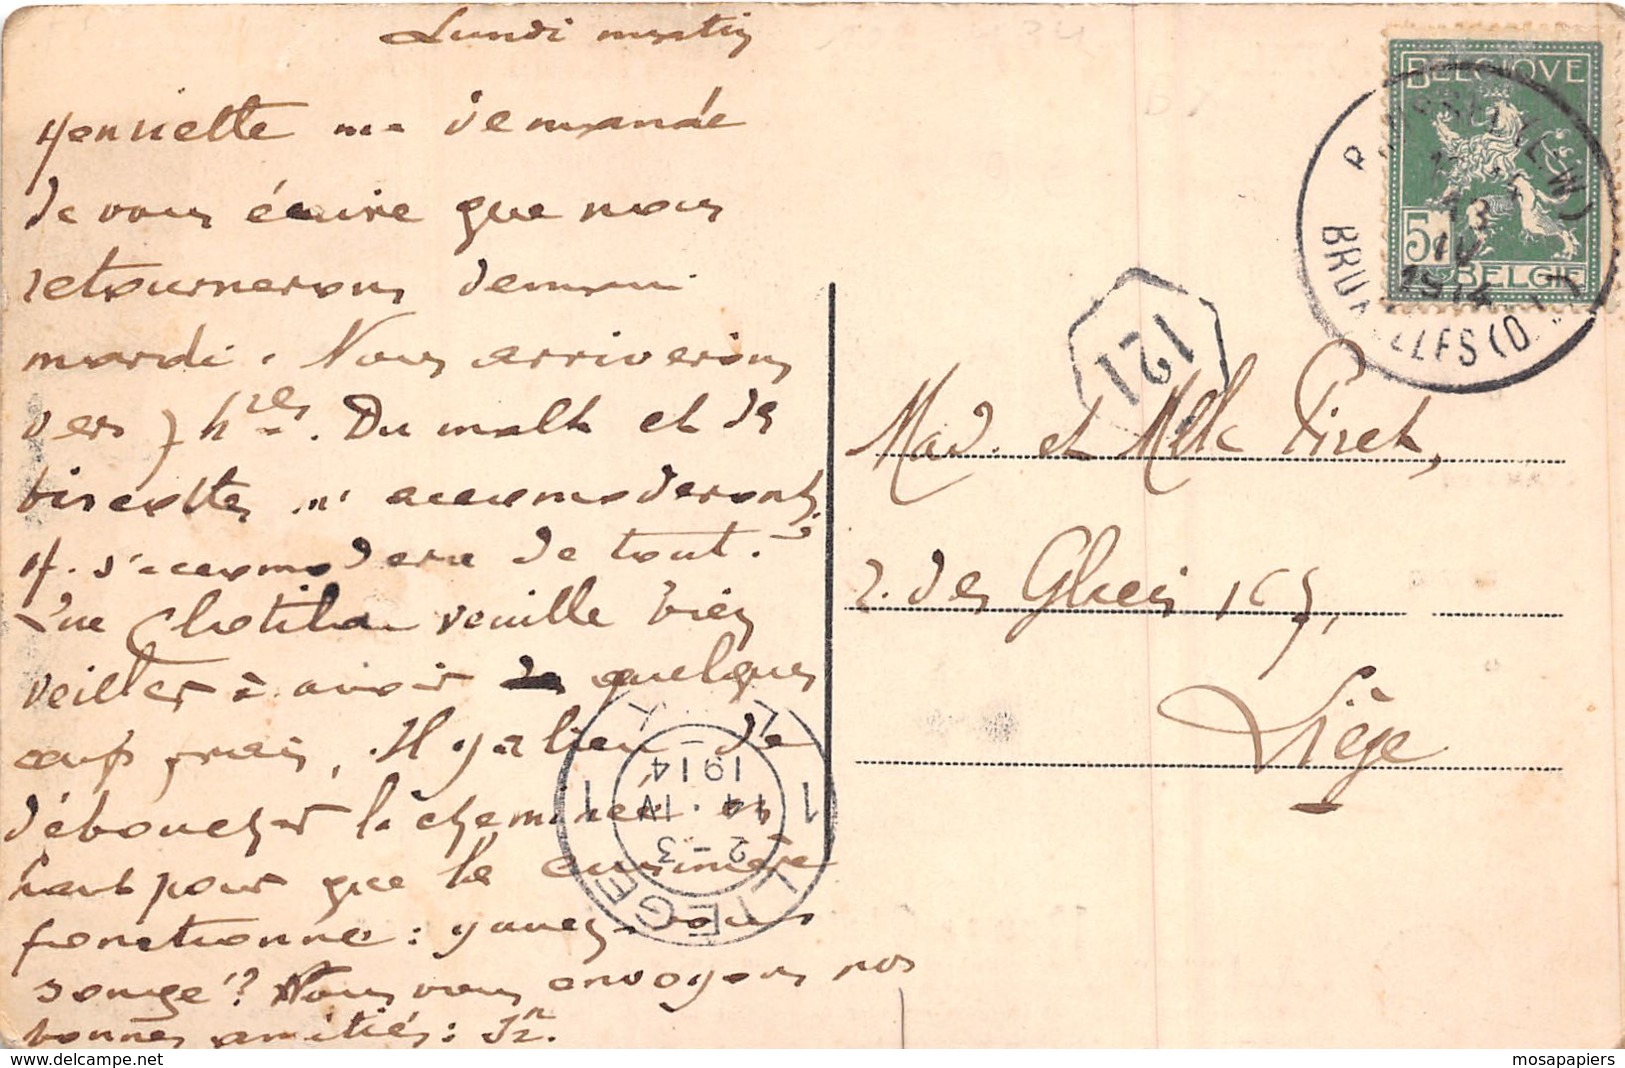 Lundi matin
Henriette me demande
de vous écrire que nous
retournerons demain
mardi. Nous arriverons
vers 7 hres. Du malt et de
biscottes m'accomoderont,
H. s'accomodera de tout.
Que Clotilde veuille bien
veiller à avoir de quelques
œufs frais. Il y a lieu de
déboucher la cheminée du
haut pour que la cuisinière
fonctionne : y avez-vous
songé ? Nous vous envoyons nos
bonnes amitiés : Jn.
BELGIQUE
5
BELGIE
13
IV
1914
BRUXELLES
121
Mad. et Melle Piret,
r. des Glacis 167,
Liège
LIEGE
1 1
2-3
14 IV
1914
mosapapiers.com
mosapapiers